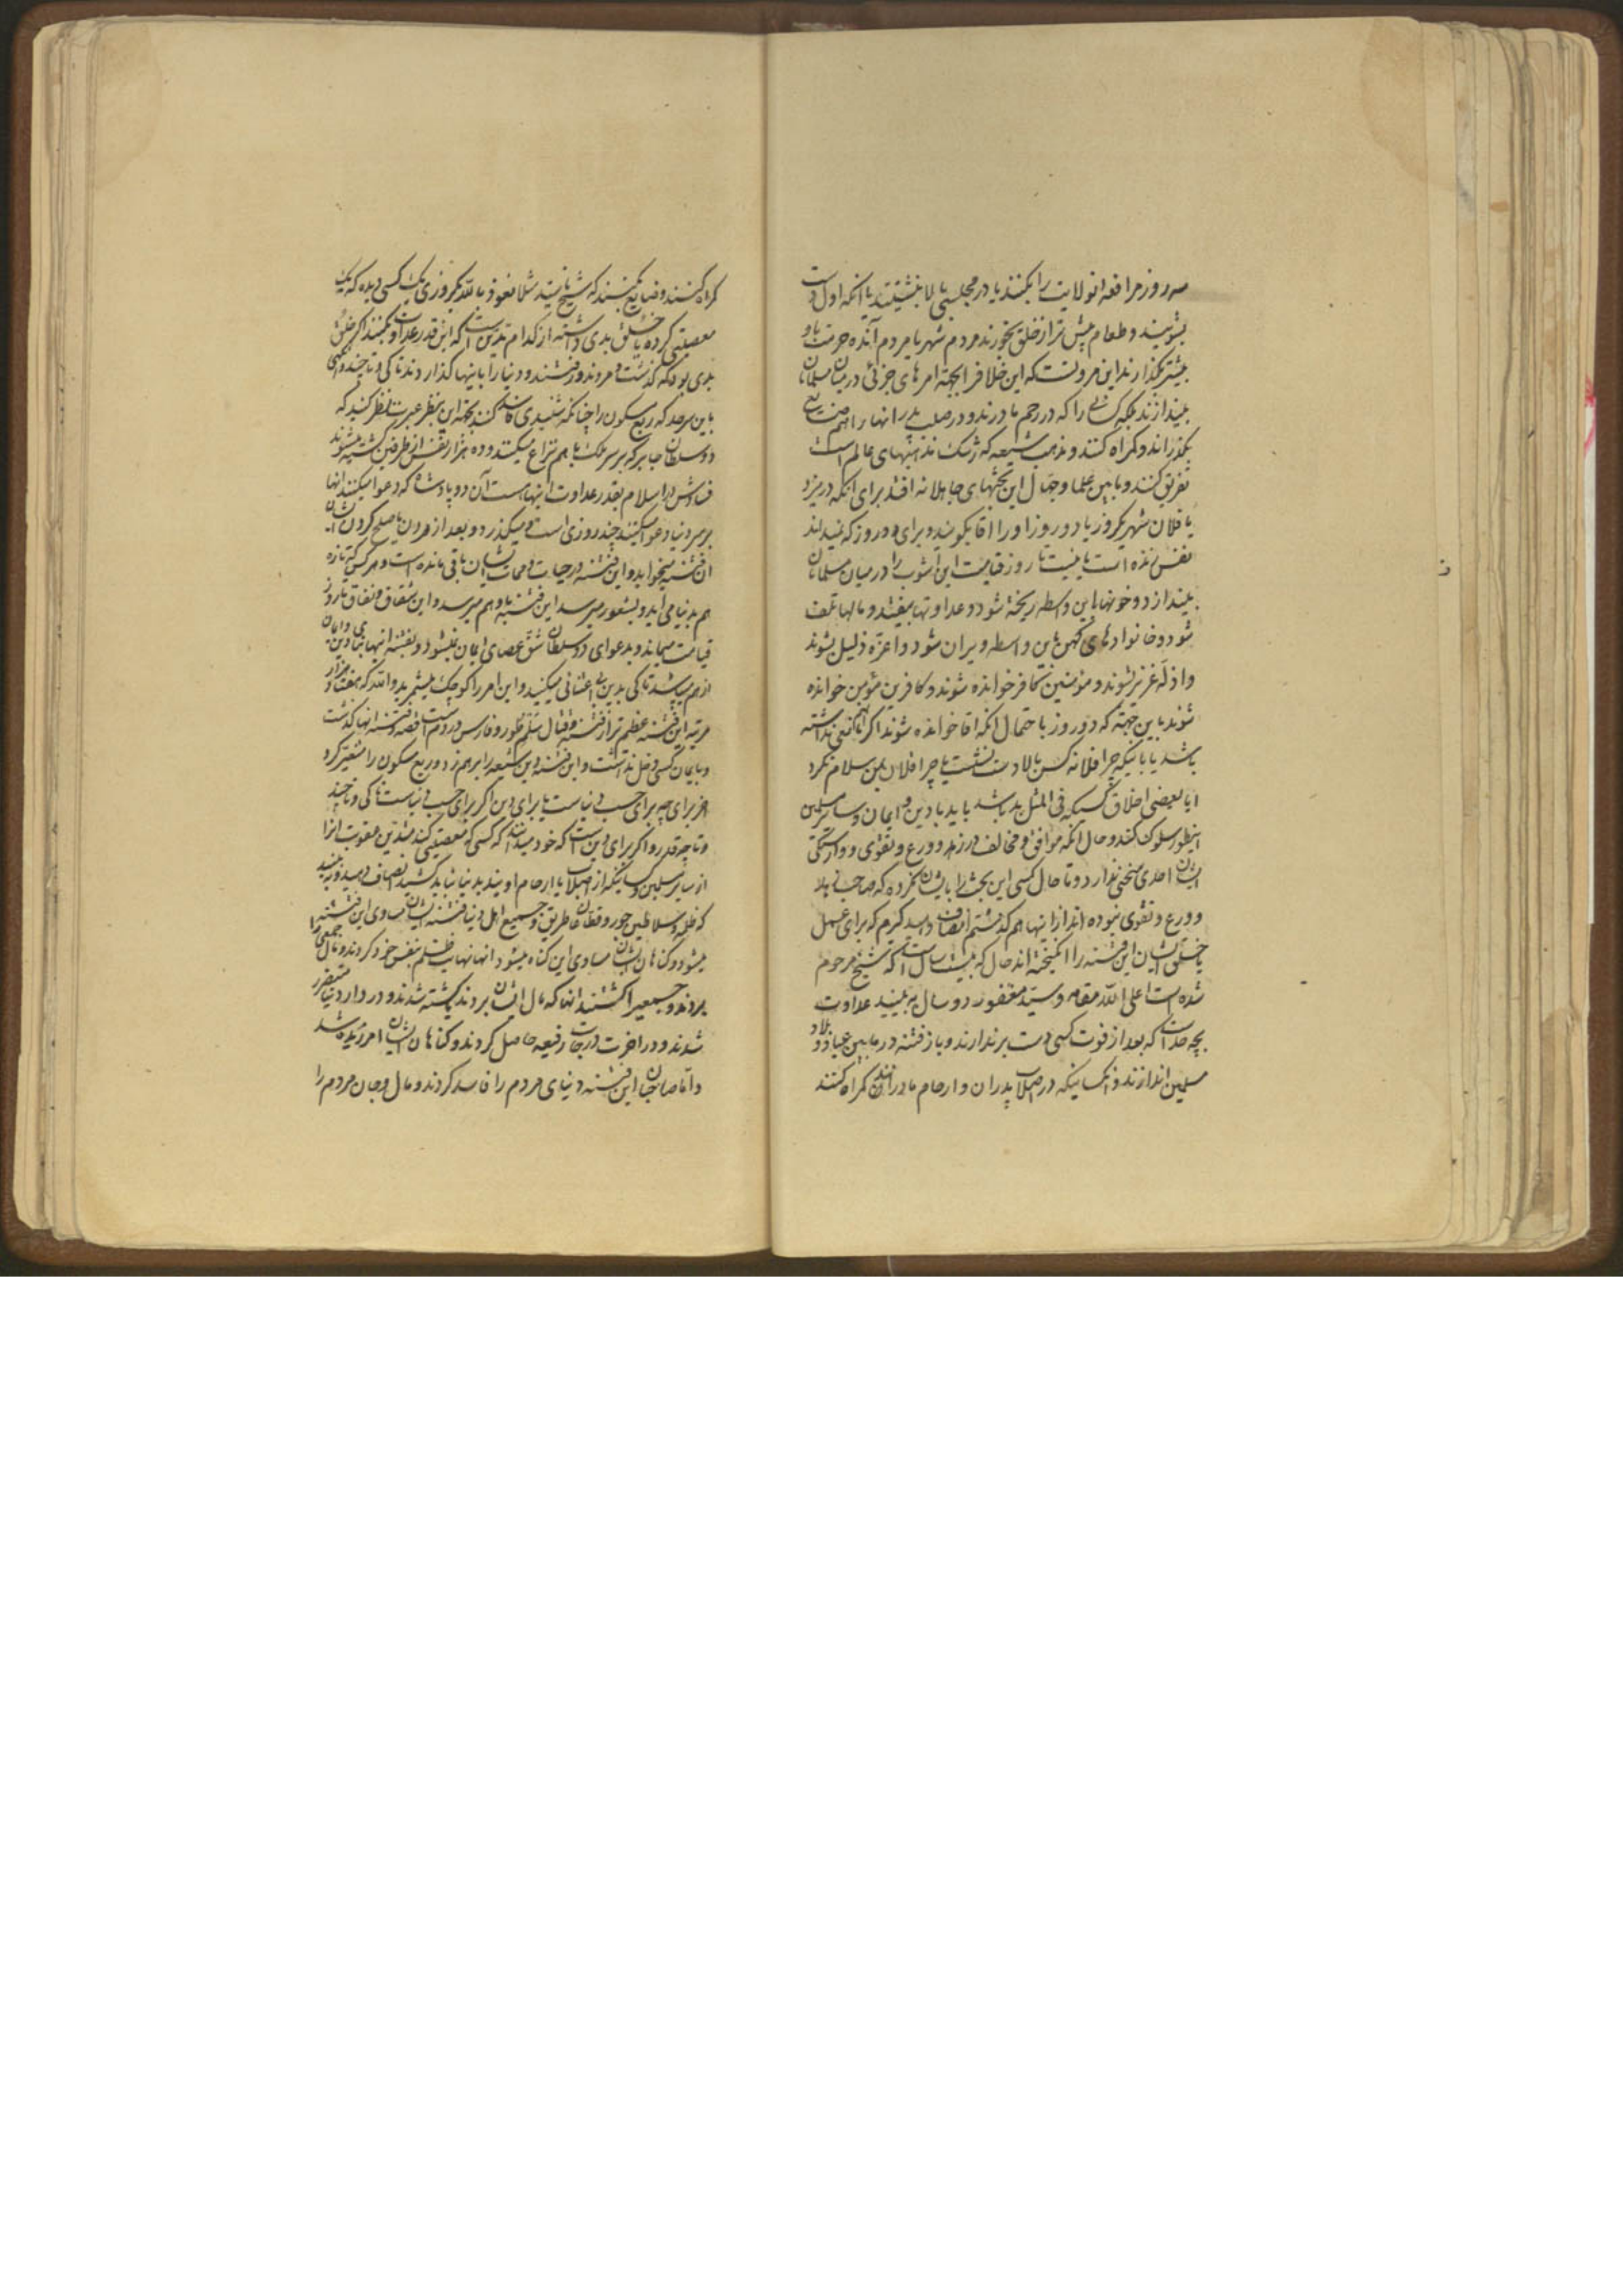 سه روز مرافعه انولایت را بکنند یا در مجلسی بالا بنشینند یا آنکه اول دست
بشویند و طعام پیش تر از خلق بخورند مردم شهر یا مردم آینده حرمت باو
بیشتر بگذارند این مروتست که این خلافرا بجهة امر های جزئی در میان مسلمانان
بیندازند بلکه کسانی را که در رحم مادرند و در صلب پدر انها را هم ضایع
بگذرانند و گمراه کنند و مذهب شیعه که رشک مذهبهای عالم است
تفریق کنند و مابین علما و جهال این بحثهای جاهلانه افتد برای انکه در یزد
یا فلان شهر یکروز یا دو روز او را اقا بگویند و برای دو روز که نمیداند
نفس زنده است یا نیست تا روز قیامت این آشوب را در میان مسلمانان
بیندازد و خونها باین واسطه ریخته شود و عداوتها بیفتد و مالها تلف
شود و خانواده های کهن باین واسطه ویران شود و اعزه ذلیل بشوند
و اذله عزیز شوند و مؤمنین کافر خوانده شوند و کافرین مؤمن خوانده
شوند باین جهة که دو روز با حتمال انکه اقا خوانده شوند اگر نداشته
باشد یا باینکه چرا فلانه کس بالا دست نشست یا چرا فلان بمن سلام نکرد
ایا بعضی اخلاق کسیکه فی المثل بد باشد باید با دین و ایمان و سایر مسلمین
اینطور سلوک کنند و حال انکه موافق و مخالف در زهد و ورع و تقوی و وارستگی
ایشان احدی سخنی ندارد و تا حال کسی این بحث را بایشان نکرده که صاحب
و ورع و تقوی نبوده اند از اینها هم گذشتم انصاف دهید گیرم که برای عمل
یا خلق ایشان این فتنه را انگیخته اند حال که بیست سال است که شیخ مرحوم
شده است اعلی الله مقامه و سید مغفور دو سال به بینید عداوت
بچه حد است که بعد از فوت کسی دست برندارند و باز فتنه در مابین عباد و بلاد
مسلمین اندازند و انکسانیکه در اصلاب پدران و ارحام مادرانند گمراه کنند
گمراه کنند و ضایع کنند که شیخ یا سید مثلا نعوذ بالله یکروزی بیک کسی دیده که یک
معصیتی کرده یا خلق بدی داشته از کدام تدین است که این قدر عداوت بکنند اگر خلق
بدی بود که گذشت و مردند و رفتند و دنیا را باینها گذاردند تا کی و تا چند و تهی
باین سرحد که ربع مسکون را چنانکه شنیدی فاسد کنند بجهة این بنظر عبرت نظر کنید که
دو سلطان جابر که بر سر ملک باهم نزاع میکنند و ده هزار نفس از طرفین کشته میشوند
فسادش در اسلام بقدر عداوت اینها است آن دو پادشاه که دعوا میکنند انها
بر سر دنیا دعوا میکنند چند روزی است و میگذرد و بعد از مردن یا صلح کردن ایشان
آن فتنه میخوابد و این فتنه در حیات و ممات ایشان باقی مانده است و هر کس که تازه
هم بدنیا می اید و بشعور میرسد این فتنه باو هم میرسد و این شقاق و نفاق تا روز
قیامت میماند و بدعوای دو سلطان شق عصای ایمان نمیشود و بفتنه اینها بنای دین و ایمان
از هم میپاشد تا کی بدین بی اعتنائی میکنید و این امر را کوچک میشمرید والله که هفتاد هزار
مرتبه این فتنه عظیم تر از فتنه و قتال سلم و تور و فارس و روم است قصه و فتنه انها گذشت
و بایمان کسی دخل نداشت و این فتنه دین شیعه را برهم زد و ربع مسکون را متغیر کرد
اخر برای چه برای حب دنیاست یا برای دین اگر برای حب دنیاست تا کی و تا چند
و تا چه قدر و اگر برای دین است که خود میدانند که کسی که معصیتی کند عقوبت انرا
از سایر مسلمین و کسانیکه از اصلاب یا ارحام اویند بدنیا نباید کشید انصاف دهید و به بینید
که ظلم سلاطین جور و قطاع الطریق و جمیع اهل دنیا فتنه ایشان مساوی این فتنه
میشود و گناهان ایشان مساوی این گناه میشود انها نهایت ظلم بنفس خود کردند و مال جمعی را
بردند و جمعیرا کشتند انها که مال ایشان بردند یا کشته شدند و در دار دنیا متضرر
شدند و در اخرت درجات رفیعه حاصل کردند و گناهان ایشان امرزیده شد
و اما صاحبان این فتنه دنیای مردم را فاسد کردند و مال و جان مردم را